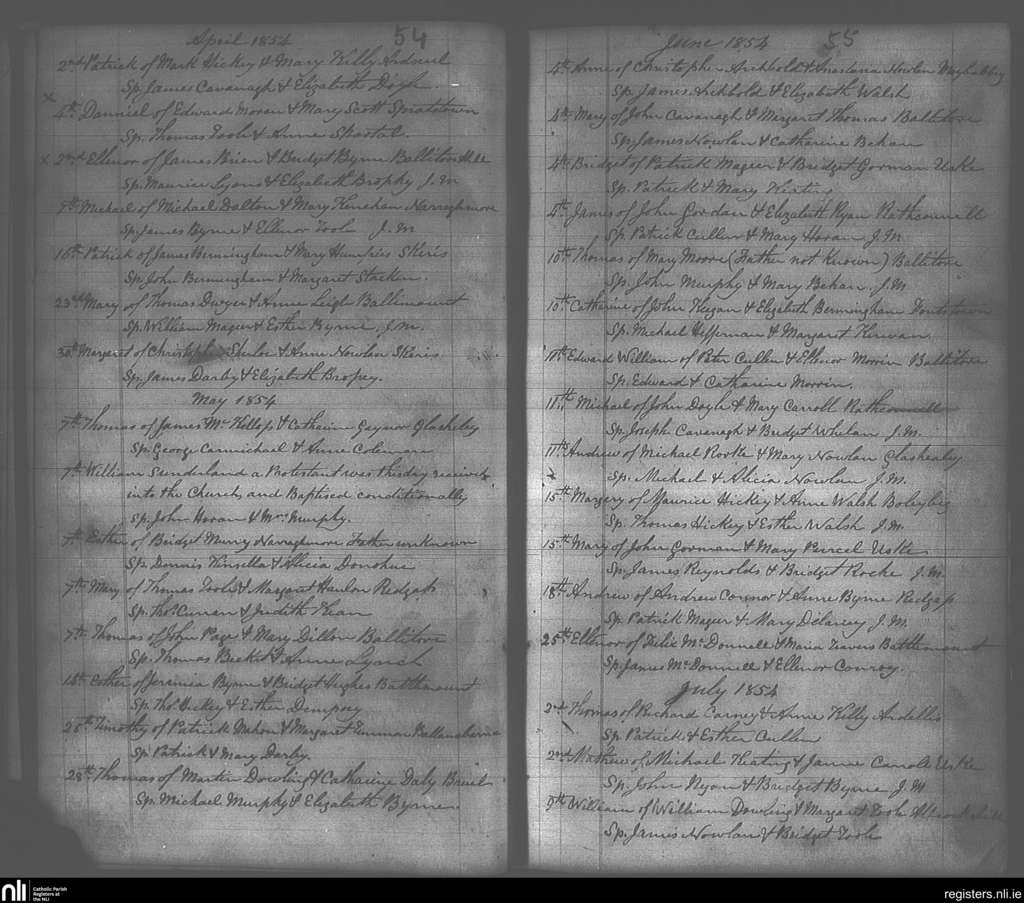 54
April 1854
2nd Patrick of Mark Hickey & Mary Kelly
Sp. James Cavanagh & Elizabeth Doyle.
4th Danniel of Edward Moran & Mary Scott Spratstown
Sp. Thomas Toole & Anne
2nd Ellenor of James Brien & Bridget Byrne Ballitore Hill
Sp. Maurice Lyons & Elizabeth Brophy J.M
9th Michael of Michael Dalton & Mary Narraghmore
Sp. James Byrne & Ellenor Toole J.M
16th Patrick of James Birmingham & Mary Humfries Skeris
Sp. John Bermungham & Margaret
23rd Mary of Thomas Dwyer & Anne Leigh Ballimount
Sp. William Mageer & Esther Byrne, J.M.
30th Margaret of & Anne Nowlan Skeris
Sp. James Darby & Elizabeth
May 1854
7th Thomas of James & Catharine Gaynor
Sp. George Carmichael & Anne Coleman
7th William Sunderland a Protestant was this day received
into the Church, and Baptised conditionally
Sp. John Horan & Mrs Murphy.
7th Esther of Bridget Narraghmore Father unknown
Sp. Dennis Kinsella & Alicia Donohue
7th Mary of Thomas Toole & Margaret Hanlon Redgap
Sp. Thos. Curran & Judith Kean
7th Thomas of John Page & Mary Dillon Ballitore
Sp. Thomas Becket & Anne Lynch
14th Esther of Jeremia Byrne & Bridget Hughes Battlmount
Sp. Thos. Hickey & Esther Dempsey
28th Timothy of Patrick Mahon & Margaret
Sp. Patrick & Mary Darby.
28th Thomas of Martin Dowling & Catharine Daly
Sp. Michael Murphy & Elizabeth Byrne
55
June 1854
4th Anne of Christophr Archbold & Anastasia Nowlan
Sp. James Archbold & Elizabeth Walsh
4th Mary of John Cavanagh & Margaret Thomas Ballitore
Sp. James Nowlan & Catharine Behan
4th Bridget of Patrick Mageer & Bridget Gorman Uske
Sp. Patrick & Mary Keating
5th James of John Jordan & Elizabeth Ryan Rathconnell
Sp. Patrick Cullen & Mary Horan J.M
10th Thomas of Mary Moore (Father not known) Ballitore
Sp. John Murphy & Mary Behan, J.M
10th Catharine of John Keegan & Elizabeth Bermungham Fontstown
Sp. Michael Heffernan & Margaret Kirwan
11th Edward William of Peter Cullen & Ellenor Morrin Ballitore
Sp. Edward & Catharine Morrin.
11th Michael of John Doyle & Mary Carroll Rathconnell
Sp. Joseph Cavanagh & Bridget Whelan J.M.
11th Andrew of Michael Rorke & Mary Nowlan Glashealy
Sp. Michael & Alicia Nowlan J.M.
15th Margery of Maurice Hickey & Anne Walsh Boleybeg
Sp. Thomas Hickey & Esther Walsh J.M.
15th Mary of John Gorman & Mary Purcel Uske
Sp. James Reynolds & Bridget Rorke J.M.
18th Andrew of Andrew Connor & Anne Byrne Redgap
Sp. Patrick Mageer & Mary Delaney J.M.
25th Ellenor of Felix Mc.Donnell & Maria Travers Battlemount
Sp. James Mc.Donnell & Ellenor Conroy.
July 1854
2nd Thomas of Richard Carney & Anne Kelly Ardellis
Sp. Patrick & Esther Cullen
2nd Mathew of Michael Keating & Janne Carroll Uske
Sp. John Ryan & Bridget Byrne J.M
9th William of William Dowling & Margaret Toole
Sp. James Nowlan & Bridget Toole
nli
Catholic Parish
Registers at
the NLI
registers.nli.ie